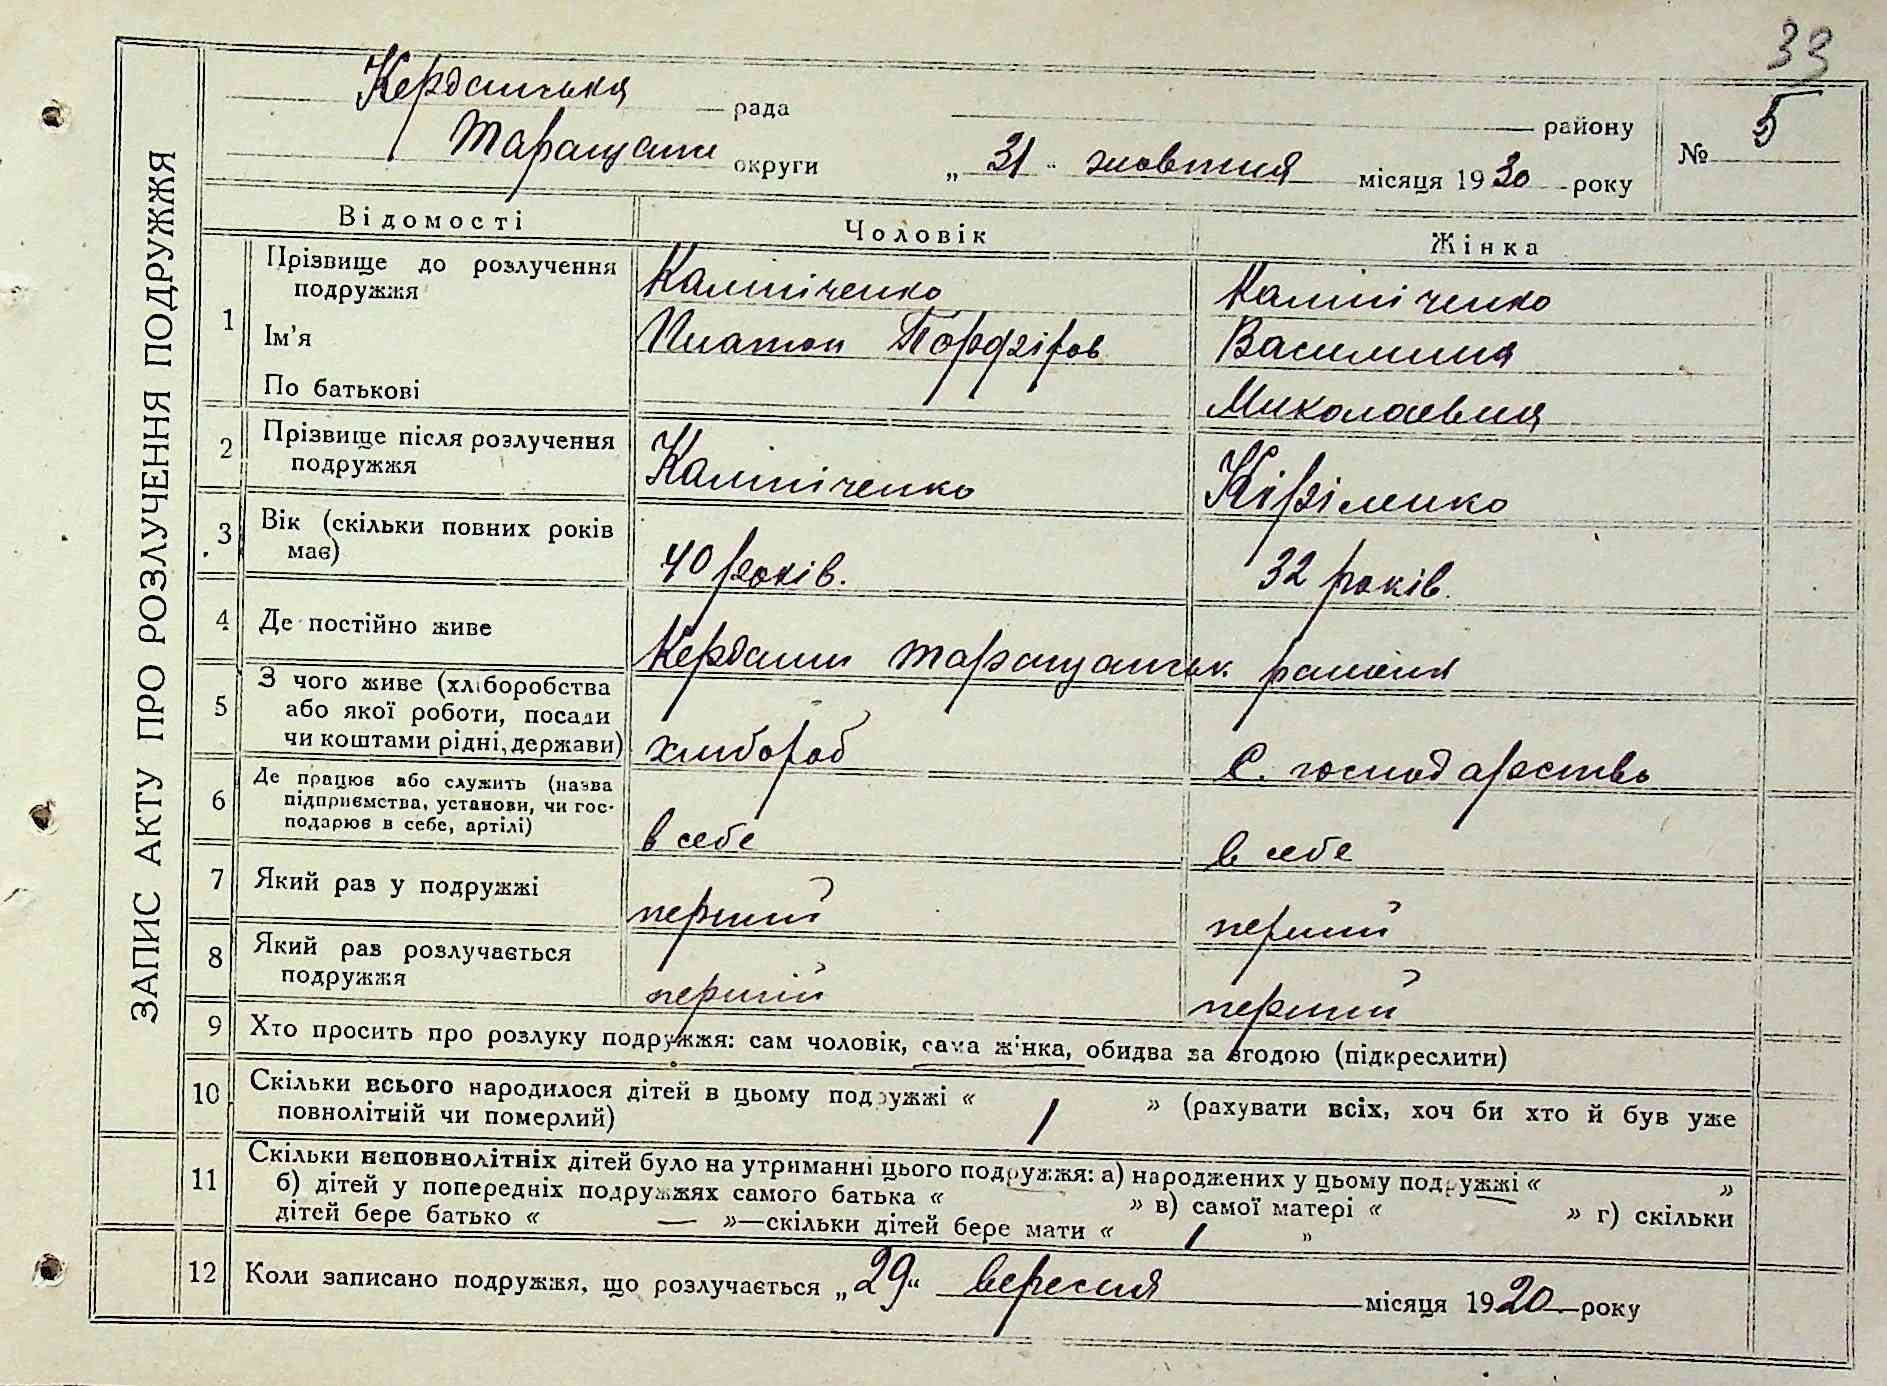 33
Керданська рада району
Таращан округи „ 31 " жовтня місяця 19 30 року № 5
ЗАПИС АКТУ ПРО РОЗЛУЧЕННЯ ПОДРУЖЖЯ
Відомості Чоловік Жінка
1 Прізвище до розлучення подружжя Калініченко Калініченко
Ім'я Платон Порфіров Василина
По батькові Миколаєвна
2 Прізвище після розлучення подружжя Калініченко Кіріленко
3 Вік (скільки повних років має) 40 років. 32 років.
4 Де постійно живе Кердани Таращанськ району
5 З чого живе (хліборобства або якої роботи, посади чи коштами рідні, держави) хлібороб С. господарство
6 Де працює або служить (назва підприємства, установи, чи господарює в себе, артілі) в себе в себе
7 Який раз у подружжі перший перший
8 Який раз розлучається подружжя перший перший
9 Хто просить про розлуку подружжя: сам чоловік, сама жінка, обидва за згодою (підкреслити)
10 Скільки всього народилося дітей в цьому подружжі « 1 » (рахувати всіх, хоч би хто й був уже
повнолітній чи померлий)
11 Скільки неповнолітніх дітей було на утриманні цього подружжя: а) народжених у цьому подружжі « »
б) дітей у попередніх подружжях самого батька « » в) самої матері « — » г) скільки
дітей бере батько « — »—скільки дітей бере мати « 1 »
12 Коли записано подружжя, що розлучається „ 29 " вересня місяця 19 20 року